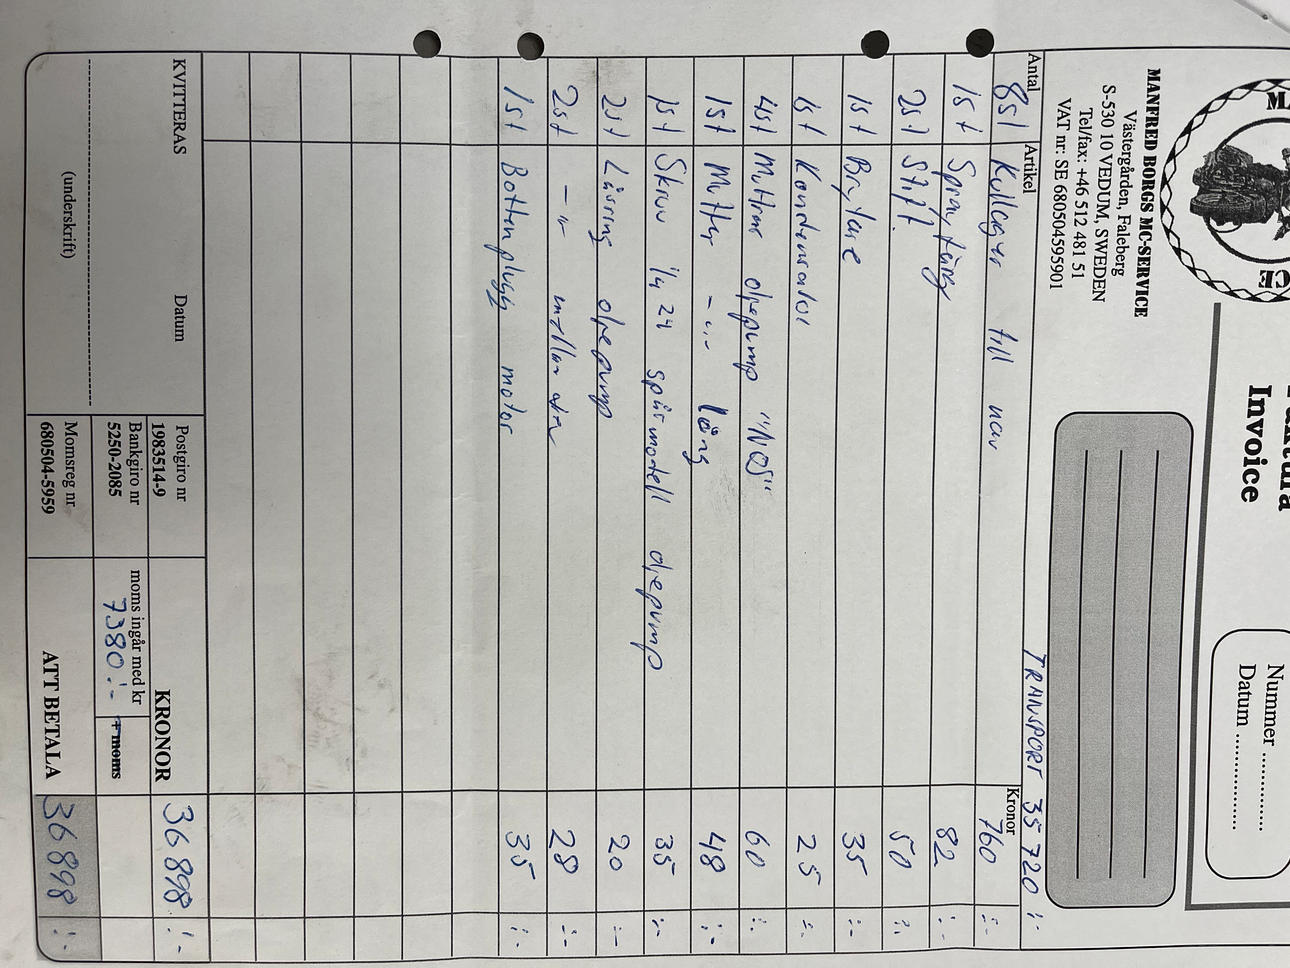 Faktura
Invoice
Nummer ..............
Datum ...............
MANFRED BORGS MC-SERVICE
Västergården, Faleberg
S-530 10 VEDUM, SWEDEN
Tel/fax: +46 512 481 51
VAT nr: SE 680504595901
TRANSPORT 35 720 :-
Antal Artikel Kronor
8st Kullager till nav 760 :-
1st Sprayfärg 82 :-
2st Stift 50 :-
1st Brytare 35 :-
1st Kondensator 25 :-
4st Muttrar oljepump "NOS" 60 :-
1st Mutter -"- lång 48 :-
1st Skruv 1/4 24 spårmodell oljepump 35 :-
2st Låsring oljepump 20 :-
2st -"- mellandrev 28 :-
1st Bottenplugg motor 35 :-
KVITTERAS Datum
(underskrift)
Postgiro nr
1983514-9
Bankgiro nr
5250-2085
Momsreg nr
680504-5959
KRONOR 36 898 :-
moms ingår med kr
7380 :- + moms
ATT BETALA 36 898 :-